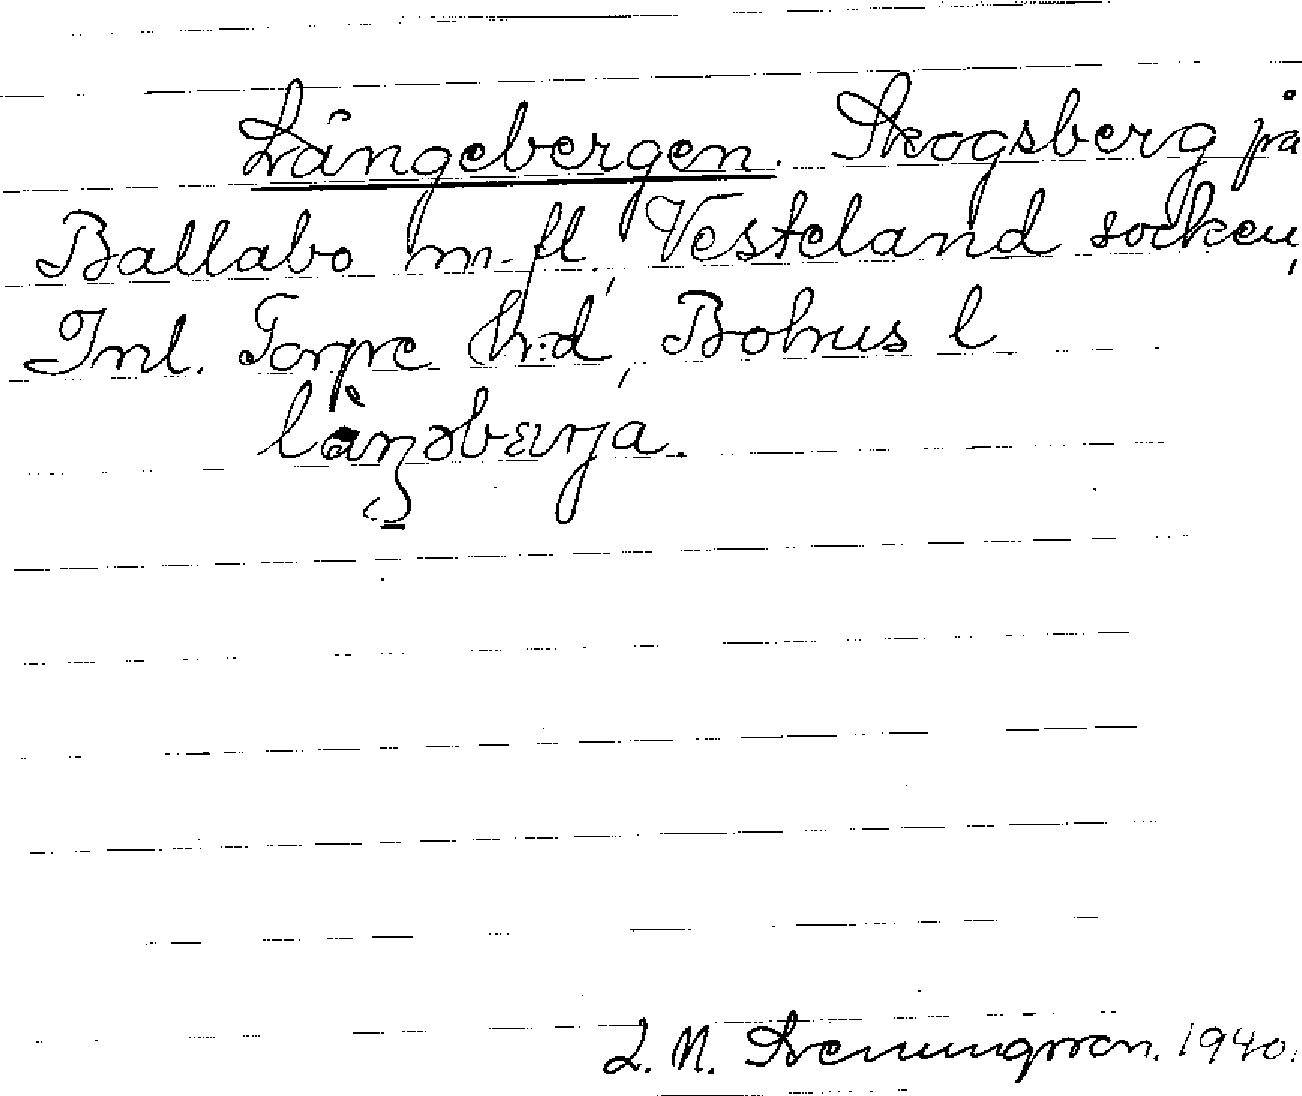 Långebergen. Skogsberg på
Ballabo m. fl, Vesteland socken,
Inl. Torpe h:d, Bohus l
L. N. Svenungsson. 1940.